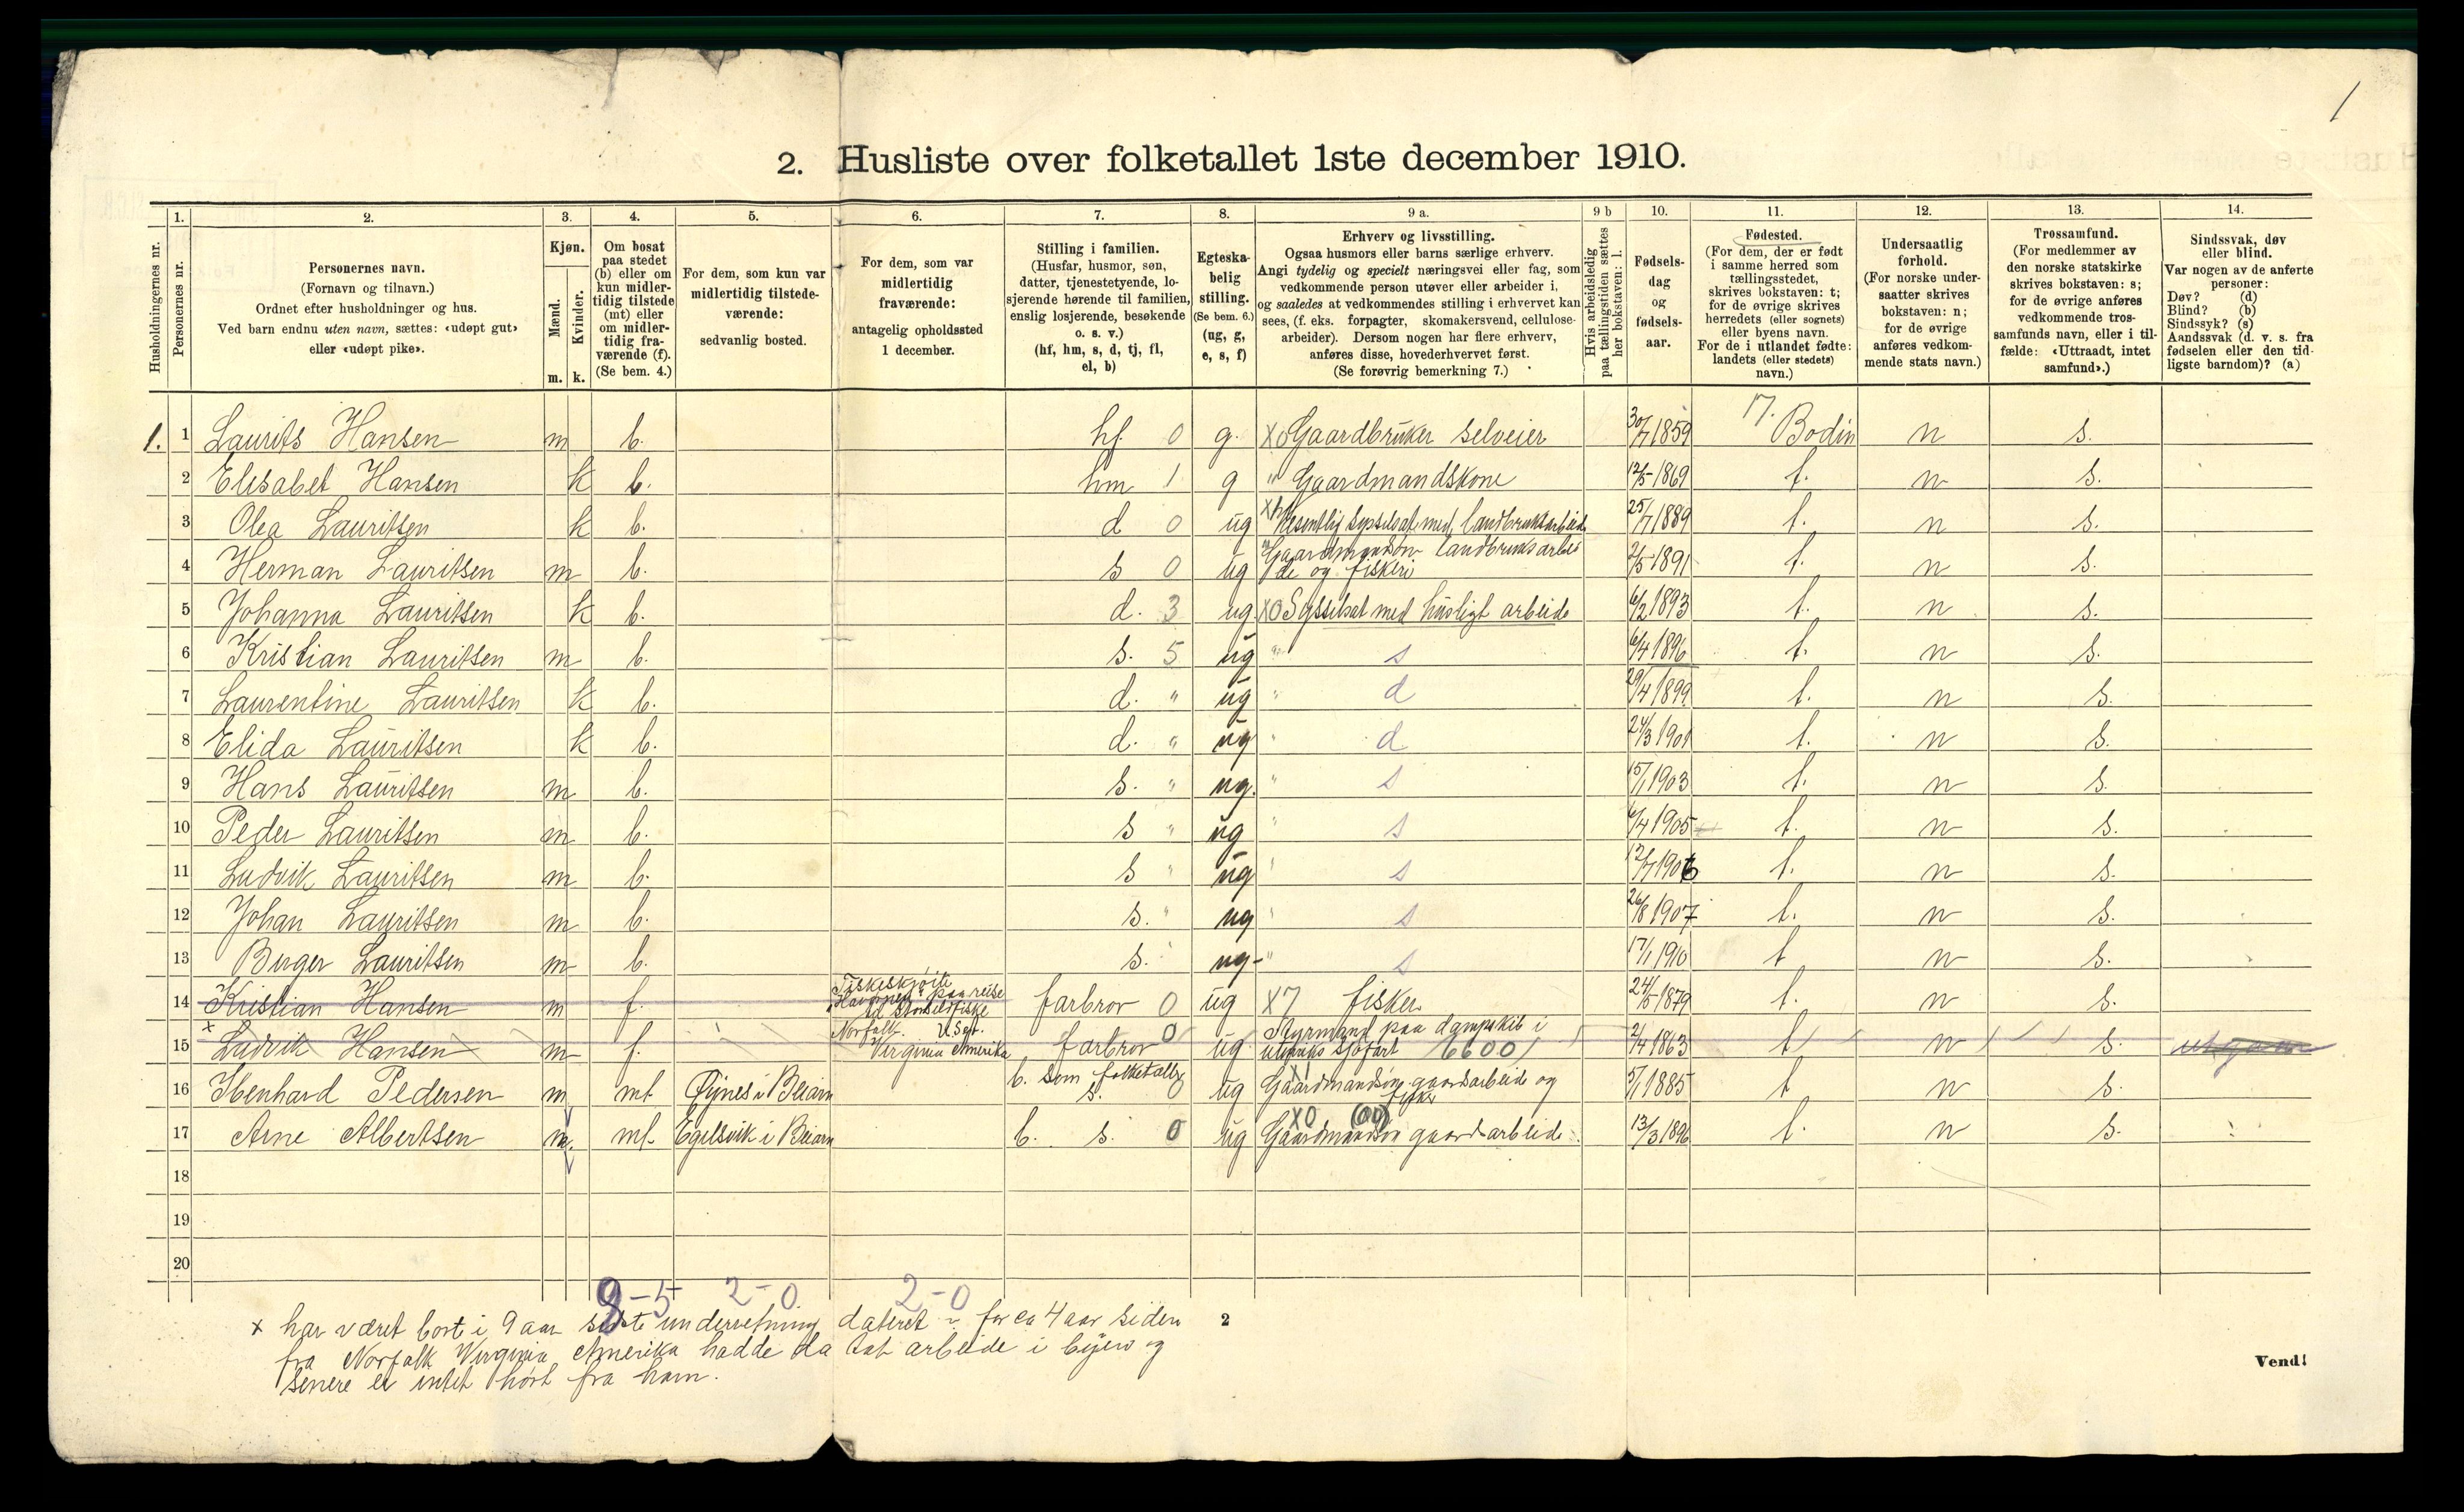 1
2. Husliste over folketallet 1ste december 1910.
Husholdningernes nr.
1.
Personernes nr.
2.
Personernes navn.
(Fornavn og tilnavn.)
Ordnet efter husholdninger og hus.
Ved barn endnu uten navn, sættes: «udøpt gut»
eller «udøpt pike».
3.
Kjøn.
Mænd.
Kvinder.
m. k.
4.
Om bosat
paa stedet
(b) eller om
kun midler-
tidig tilstede
(mt) eller
om midler-
tidig fra-
værende (f).
(Se bem. 4.)
5.
For dem, som kun var
midlertidig tilstede-
værende:
sedvanlig bosted.
6.
For dem, som var
midlertidig
fraværende:
antagelig opholdssted
1 december.
7.
Stilling i familien.
(Husfar, husmor, søn,
datter, tjenestetyende, lo-
sjerende hørende til familien,
enslig losjerende, besøkende
o. s. v.)
(hf, hm, s, d, tj, fl,
el, b)
8.
Egteska-
belig
stilling.
(Se bem. 6.)
(ug, g,
e, s, f)
9 a.
Erhverv og livsstilling.
Ogsaa husmors eller barns særlige erhverv.
Angi tydelig og specielt næringsvei eller fag, som
vedkommende person utøver eller arbeider i,
og saaledes at vedkommendes stilling i erhvervet kan
sees, (f. eks. forpagter, skomakersvend, cellulose-
arbeider). Dersom nogen har flere erhverv,
anføres disse, hovederhvervet først.
(Se forøvrig bemerkning 7.)
9 b
Hvis arbeidsledig
paa tællingstiden sættes
her bokstaven: l.
10.
Fødsels-
dag
og
fødsels-
aar.
11.
Fødested.
(For dem, der er født
i samme herred som
tællingsstedet,
skrives bokstaven: t;
for de øvrige skrives
herredets (eller sognets)
eller byens navn.
For de i utlandet fødte:
landets (eller stedets)
navn.)
12.
Undersaatlig
forhold.
(For norske under-
saatter skrives
bokstaven: n;
for de øvrige
anføres vedkom-
mende stats navn.)
13.
Trossamfund.
(For medlemmer av
den norske statskirke
skrives bokstaven: s;
for de øvrige anføres
vedkommende tros-
samfunds navn, eller i til-
fælde: «Uttraadt, intet
samfund».)
14.
Sindssvak, døv
eller blind.
Var nogen av de anførte
personer:
Døv? (d)
Blind? (b)
Sindssyk? (s)
Aandssvak (d. v. s. fra
fødselen eller den tid-
ligste barndom)? (a)
1. 1 Laurits Hansen m b. hf. 0 g. X0 Gaardbruker selveier 30/7 1859 17. Bodin n s.
2 Elisabet Hansen k b. hm 1 g " Gaardmandskone 12/5 1869 t. n s.
3 Olea Lauritsen k b. d 0 ug Vesentlig sysselsat med landbruksarbeide 25/7 1889 t. n s.
4 Herman Lauritsen m b. s 0 ug Gaardmandsøn landbruksarbei
de og fiskeri 2/5 1891 t. n s.
5 Johanna Lauritsen k b. d. 3 ug X0 Sysselsat med husligt arbeide 6/2 1893 t. n s.
6 Kristian Lauritsen m b. s. 5 ug " s 6/4 1896 t. n s.
7 Laurentine Lauritsen k b. d. " ug " d 29/4 1899 t. n s.
8 Elida Lauritsen k b. d. " ug " d 24/3 1901 t. n s.
9 Hans Lauritsen m b. s. " ug. " s 15/1 1903 t. n s.
10 Peder Lauritsen m b. s " ug " s 6/4 1905 t. n s.
11 Ludvik Lauritsen m b. s " ug " s 12/7 1906 t. n s.
12 Johan Lauritsen m b. s. " ug " s 26/8 1907 t. n s.
13 Birger Lauritsen m b. s. " ug " s 17/1 1910 t n s.
14 Kristian Hansen m f. Fiskeskjøite
paa reise
til Storsildfiske farbror 0 ug X7 fisker 24/5 1879 t. n s.
x
15 Ludvik Hansen m f. Norfalk
Virginia Amerika farbror 0 ug Styrmand paa dampskib i
utenriks sjøfart 6600 2/4 1863 t n s. utgaar
16 Ibenhard Pedersen m mt Øynes i Beiarn b. som folketallt
s. 0 ug Gaardmandsøn gaardsarbeide og
fisker 5/1 1885 t n s.
17 Arne Albertsen m. mt. Egilsvik i Beiarn b. s. 0 ug X0 Gaardmandsøn gaardsarbeide 13/3 1896 t. n s.
18
19
20
9-5 2-0 2-0
x har været bort i 9 aar siste underretning dateret for ca 4 aar siden
fra Norfalk Virginia Amerika hadde da tat arbeide i byen og
senere er intet hørt fra ham.
2
Vend!